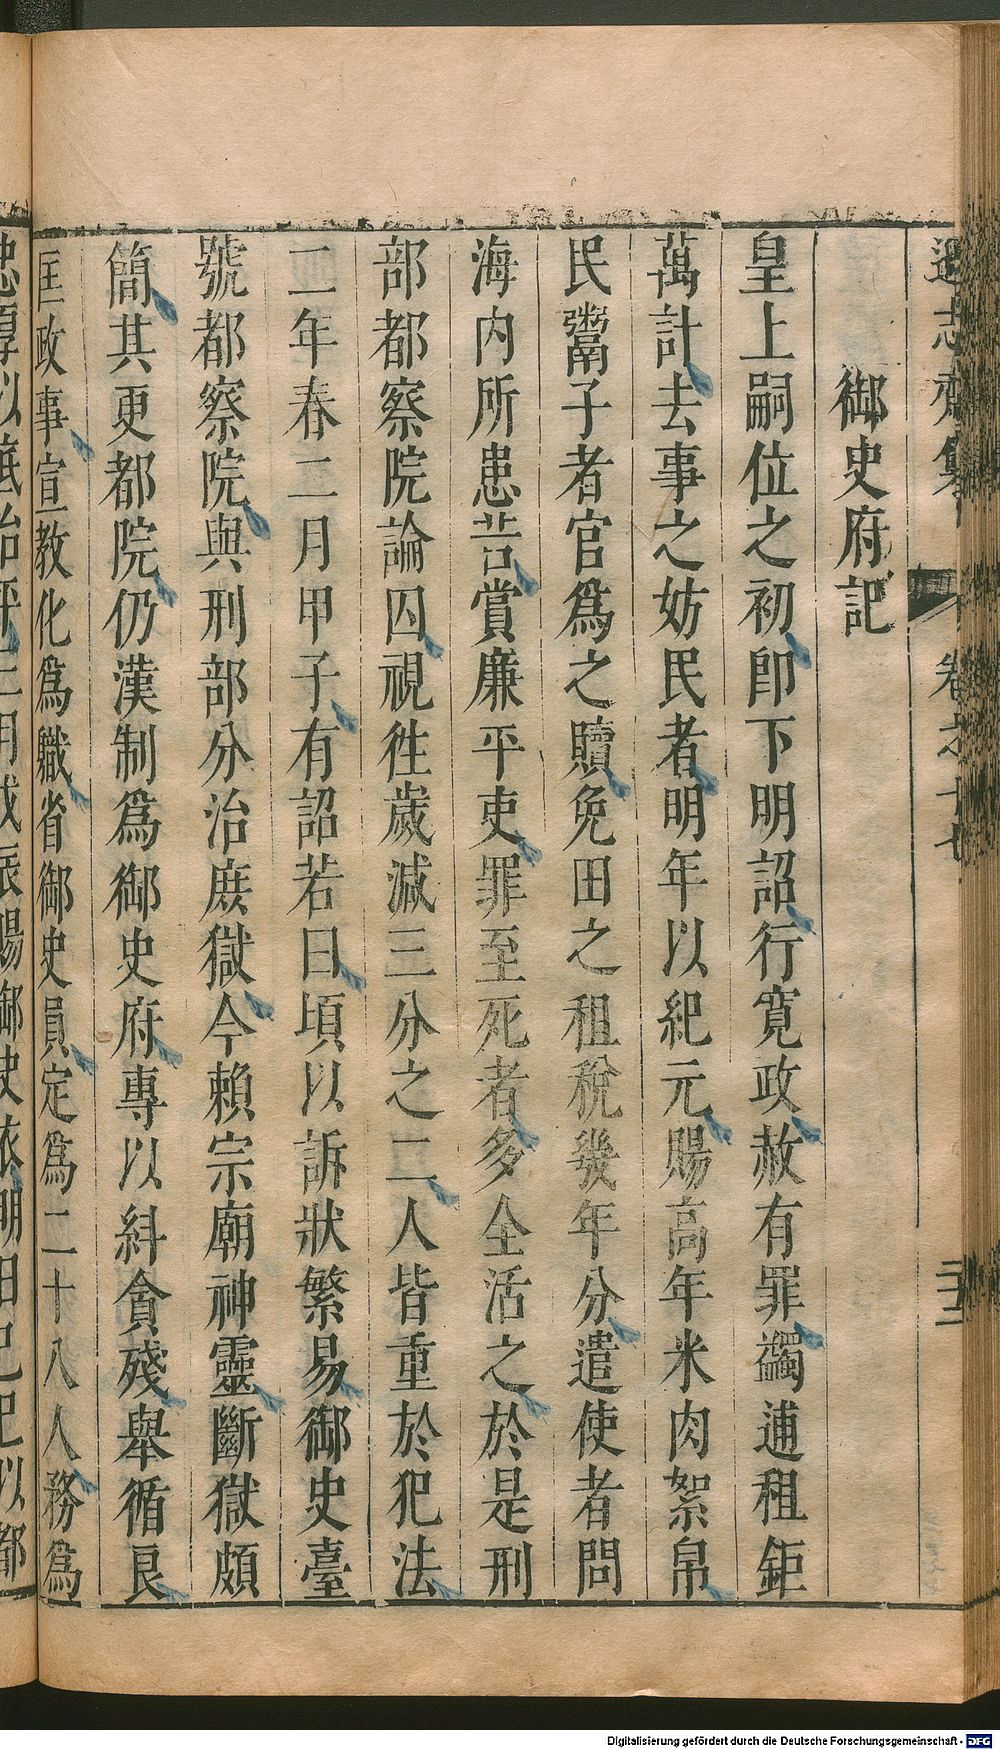 遜志齋集 卷之十七 三十二
御史府記
皇上嗣位之初卽下明詔行寬政赦有罪蠲逋租鉅
萬計去事之妨民者明年以紀元賜高年米肉絮帛
民鬻子者官爲之贖免田之租稅幾年分遣使者問
海内所患苦賞廉平吏罪至死者多全活之於是刑
部都察院論囚視徃歲減三分之二人皆重於犯法
二年春二月甲子有詔若曰頃以訴狀繁易御史臺
號都察院與刑部分治庶獄今賴宗廟神靈斷獄頗
簡其更都院仍漢制爲御史府專以糾貪殘舉循良
匡政事宣教化爲職省御史員定爲二十八人務爲
忠厚以底治平三月戊辰賜御史依明日己巳以都
Digitalisierung gefördert durch die Deutsche Forschungsgemeinschaft - DFG